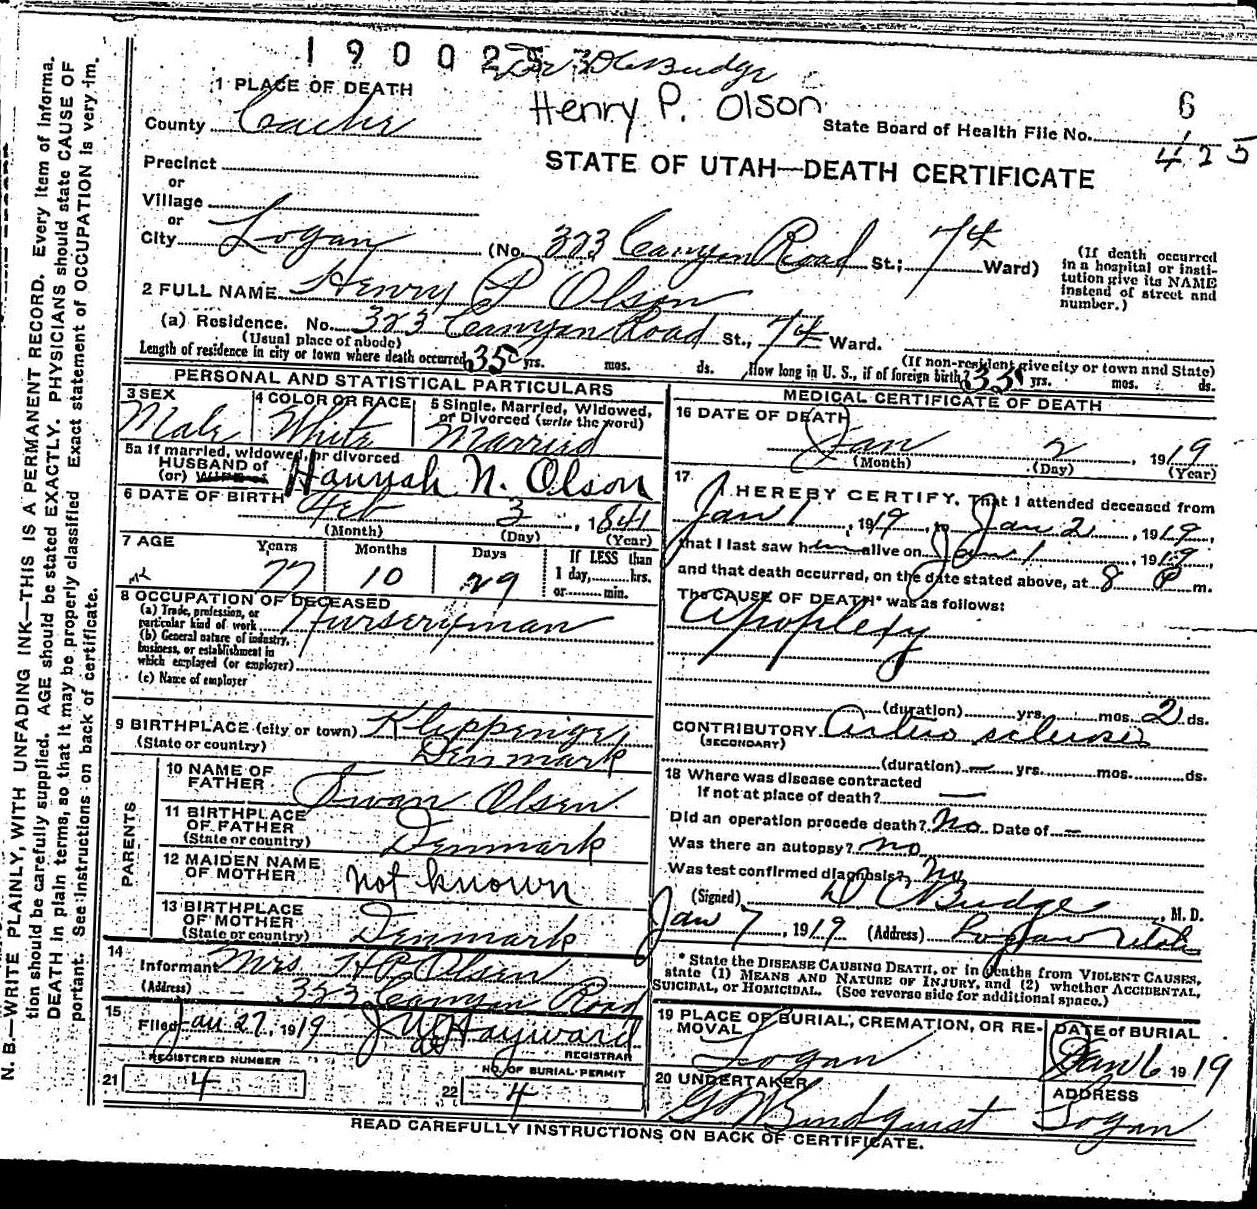 190025 Dr D C Budge
1 PLACE OF DEATH
Henry P. Olson
6
County Cache
State Board of Health File No.
425
Precinct
STATE OF UTAH—DEATH CERTIFICATE
or
Village
or
City Logan (No. 323 Canyon Road St.; 74 Ward)
(If death occurred
in a hospital or insti-
tution give its NAME
instead of street and
number.)
2 FULL NAME Henry P Olson
(a) Residence. No. 323 Canyon Road St., 74 Ward.
(Usual place of abode)
(If non-resident give city or town and State)
Length of residence in city or town where death occurred 35 yrs. mos. ds. How long in U. S., if of foreign birth? 35 yrs. mos. ds.
PERSONAL AND STATISTICAL PARTICULARS
3 SEX
Male
4 COLOR OR RACE
White
5 Single, Married, Widowed,
or Divorced (write the word)
Married
5a If married, widowed, or divorced
HUSBAND of
(or) WIFE of
Hannah N. Olson
6 DATE OF BIRTH
Feb 3, 1841
(Month) (Day) (Year)
7 AGE
Years Months Days
77 10 29
If LESS than
1 day, hrs.
or min.
8 OCCUPATION OF DECEASED
(a) Trade, profession, or
particular kind of work Nurseryman
(b) General nature of industry,
business, or establishment in
which employed (or employer)
(c) Name of employer
9 BIRTHPLACE (city or town) Klippinger
(State or country) Denmark
PARENTS
10 NAME OF
FATHER Swan Olsen
11 BIRTHPLACE
OF FATHER
(State or country) Denmark
12 MAIDEN NAME
OF MOTHER not known
13 BIRTHPLACE
OF MOTHER
(State or country) Denmark
14
Informant Mrs H P Olsen
(Address) 323 Canyon Road
15
Filed Jan 27, 1919 J W Hayward
REGISTRAR
REGISTERED NUMBER
21 4
NO. OF BURIAL PERMIT
22 4
MEDICAL CERTIFICATE OF DEATH
16 DATE OF DEATH
Jan 2, 1919
(Month) (Day) (Year)
17
I HEREBY CERTIFY, That I attended deceased from
Jan 1, 1919, to Jan 2, 1919,
that I last saw him alive on Jan 1 1919,
and that death occurred, on the date stated above, at 8 P m.
The CAUSE OF DEATH* was as follows:
Apoplexy
(duration) yrs. mos. 2 ds.
CONTRIBUTORY Arterio sclerosis
(SECONDARY)
(duration) — yrs. mos. ds.
18 Where was disease contracted
If not at place of death? —
Did an operation precede death? No Date of —
Was there an autopsy? no
Was test confirmed diagnosis? No
(Signed) D C Budge, M. D.
Jan 7, 1919 (Address) Logan Utah
* State the DISEASE CAUSING DEATH, or in deaths from VIOLENT CAUSES,
state (1) MEANS AND NATURE OF INJURY, and (2) whether ACCIDENTAL,
SUICIDAL, or HOMICIDAL. (See reverse side for additional space.)
19 PLACE OF BURIAL, CREMATION, OR RE-
MOVAL
Logan
DATE of BURIAL
Jan 6 1919
20 UNDERTAKER
G W Lindquist
ADDRESS
Logan
READ CAREFULLY INSTRUCTIONS ON BACK OF CERTIFICATE.
N. B.—WRITE PLAINLY, WITH UNFADING INK—THIS IS A PERMANENT RECORD. Every item of informa-
tion should be carefully supplied. AGE should be stated EXACTLY. PHYSICIANS should state CAUSE OF
DEATH in plain terms, so that it may be properly classified. Exact statement of OCCUPATION is very im-
portant. See instructions on back of certificate.